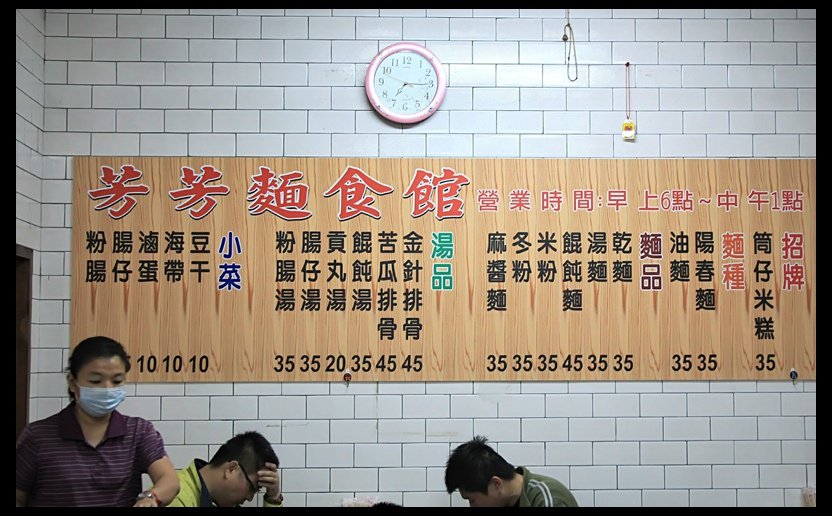 芳芳麵食館
營業時間:早上6點~中午1點
招牌
筒仔米糕 35
麵種
陽春麵 35
油麵 35
麵品
乾麵 35
湯麵 35
餛飩麵 45
米粉 35
冬粉 35
麻醬麵 35
湯品
金針排骨 45
苦瓜排骨 45
餛飩湯 35
貢丸湯 20
腸仔湯 35
粉腸湯 35
小菜
豆干 10
海帶 10
滷蛋 10
腸仔
粉腸
12 1 2 3 4 5 6 7 8 9 10 11